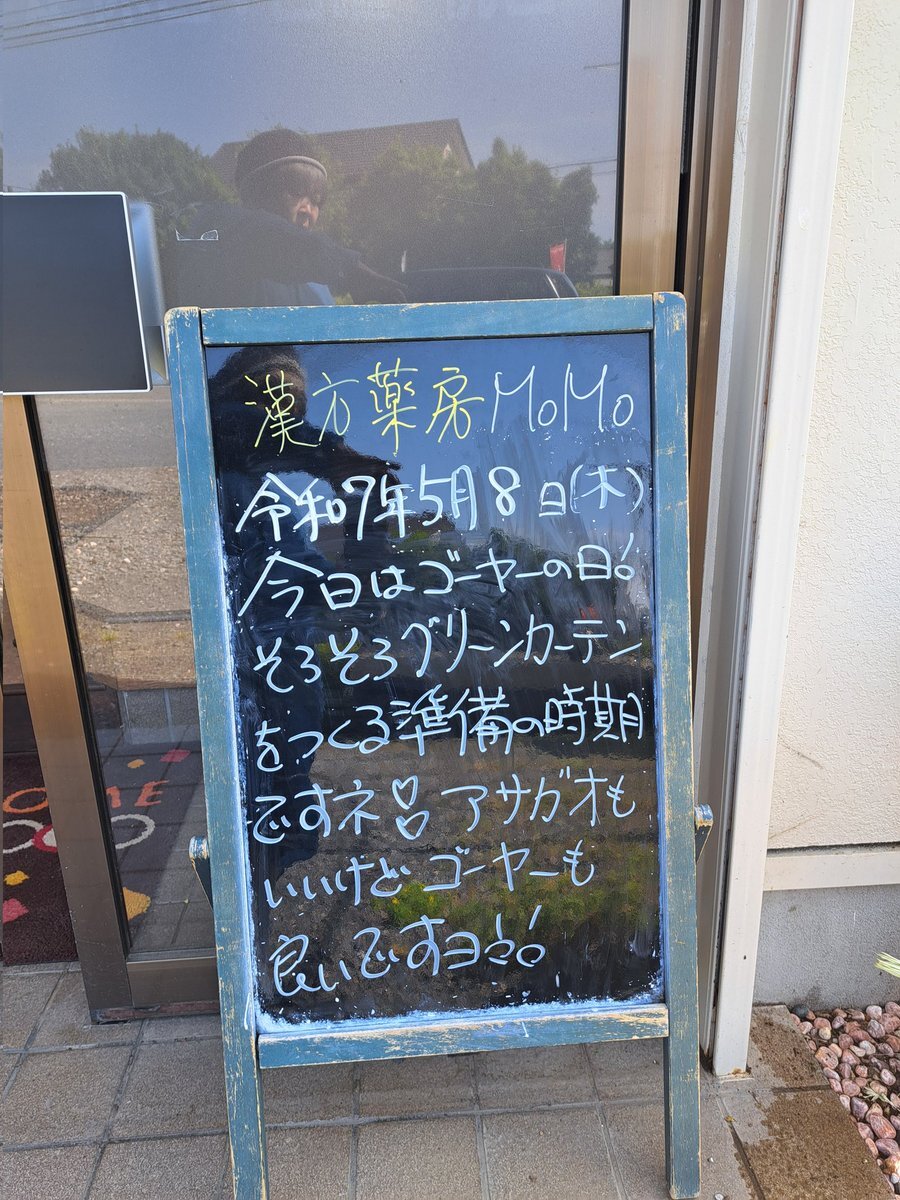 漢方薬房MoMo
令和7年5月8日(木)
今日はゴーヤーの日!
そろそろグリーンカーテン
をつくる準備の時期
ですネ アサガオも
いいけど ゴーヤーも
良いですヨ!
OME